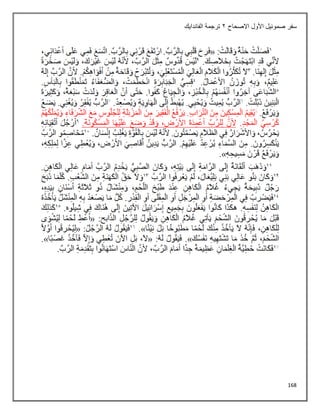 سفر صموئيل الأول الإصحاح ٢ ترجمة الفاندايك
١فَصَلَّتْ حَنَّةُ وَقَالَتْ: «فَرِحَ قَلْبِي بِالرَّبِّ. ارْتَفَعَ قَرْنِي بِالرَّبِّ. اتَّسَعَ فَمِي عَلَى أَعْدَائِي،
لأَنِّي قَدِ ابْتَهَجْتُ بِخَلاَصِكَ. ٢لَيْسَ قُدُّوسٌ مِثْلَ الرَّبِّ، لأَنَّهُ لَيْسَ غَيْرَكَ، وَلَيْسَ صَخْرَةٌ
مِثْلَ إِلهِنَا. ٣لاَ تُكَثِّرُوا الْكَلاَمَ الْعَالِيَ الْمُسْتَعْلِيَ، وَلْتَبْرَحْ وَقَاحَةٌ مِنْ أَفْوَاهِكُمْ. لأَنَّ الرَّبَّ إِلهٌ
عَلِيمٌ، وَبِهِ تُوزَنُ الأَعْمَالُ. ٤قِسِيُّ الْجَبَابِرَةِ انْحَطَمَتْ، وَالضُّعَفَاءُ تَمَنْطَقُوا بِالْبَأْسِ.
٥الشَّبَاعَى آجَرُوا أَنْفُسَهُمْ بِالْخُبْزِ، وَالْجِيَاعُ كَفُّوا. حَتَّى أَنَّ الْعَاقِرَ وَلَدَتْ سَبْعَةً، وَكَثِيرَةَ
الْبَنِينَ ذَبُلَتْ. ٦الرَّبُّ يُمِيتُ وَيُحْيِي. يُهْبِطُ إِلَى الْهَاوِيَةِ وَيُصْعِدُ. ٧الرَّبُّ يُفْقِرُ وَيُغْنِي. يَضَعُ
وَيَرْفَعُ. ٨يُقِيمُ الْمِسْكِينَ مِنَ التُّرَابِ. يَرْفَعُ الْفَقِيرَ مِنَ الْمَزْبَلَةِ لِلْجُلُوسِ مَعَ الشُّرَفَاءِ وَيُمَلِّكُهُمْ
كُرْسِيَّ الْمَجْدِ. لأَنَّ لِلرَّبِّ أَعْمِدَةَ الأَرْضِ، وَقَدْ وَضَعَ عَلَيْهَا الْمَسْكُونَةَ. ٩أَرْجُلَ أَتْقِيَائِهِ
يَحْرُسُ، وَالأَشْرَارُ فِي الظَّلاَمِ يَصْمُتُونَ. لأَنَّهُ لَيْسَ بِالْقُوَّةِ يَغْلِبُ إِنْسَانٌ. ١٠مُخَاصِمُو الرَّبِّ
يَنْكَسِرُونَ. مِنَ السَّمَاءِ يُرْعِدُ عَلَيْهِمْ. الرَّبُّ يَدِينُ أَقَاصِيَ الأَرْضِ، وَيُعْطِي عِزًّا لِمَلِكِهِ،
وَيَرْفَعُ قَرْنَ مَسِيحِهِ».
١١وَذَهَبَ أَلْقَانَةُ إِلَى الرَّامَةِ إِلَى بَيْتِهِ. وَكَانَ الصَّبِيُّ يَخْدِمُ الرَّبَّ أَمَامَ عَالِي الْكَاهِنِ.
١٢وَكَانَ بَنُو عَالِي بَنِي بَلِيَّعَالَ، لَمْ يَعْرِفُوا الرَّبَّ ١٣وَلاَ حَقَّ الْكَهَنَةِ مِنَ الشَّعْبِ. كُلَّمَا ذَبَحَ
رَجُلٌ ذَبِيحَةً يَجِيءُ غُلاَمُ الْكَاهِنِ عِنْدَ طَبْخِ اللَّحْمِ، وَمِنْشَالٌ ذُو ثَلاَثَةِ أَسْنَانٍ بِيَدِهِ،
١٤فَيَضْرِبُ فِي الْمِرْحَضَةِ أَوِ الْمِرْجَلِ أَوِ الْمِقْلَى أَوِ الْقِدْرِ. كُلُّ مَا يَصْعَدُ بِهِ الْمِنْشَلُ يَأْخُذُهُ
الْكَاهِنُ لِنَفْسِهِ. هكَذَا كَانُوا يَفْعَلُونَ بِجَمِيعِ إِسْرَائِيلَ الآتِينَ إِلَى هُنَاكَ فِي شِيلُوهَ. ١٥كَذلِكَ
قَبْلَ مَا يُحْرِقُونَ الشَّحْمَ يَأْتِي غُلاَمُ الْكَاهِنِ وَيَقُولُ لِلرَّجُلِ الذَّابِحِ: «أَعْطِ لَحْمًا لِيُشْوَى
لِلْكَاهِنِ، فَإِنَّهُ لاَ يَأْخُذُ مِنْكَ لَحْمًا مَطْبُوخًا بَلْ نَيْئًا». ١٦فَيَقُولُ لَهُ الرَّجُلُ: «لِيُحْرِقُوا أَوَّلاً
الشَّحْمَ، ثُمَّ خُذْ مَا تَشْتَهِيهِ نَفْسُكَ». فَيَقُولُ لَهُ: «لاَ، بَلِ الآنَ تُعْطِي وَإِلاَّ فَآخُذُ غَصْبًا».
١٧فَكَانَتْ خَطِيَّةُ الْغِلْمَانِ عَظِيمَةً جِدًّا أَمَامَ الرَّبِّ، لأَنَّ النَّاسَ اسْتَهَانُوا تَقْدِمَةَ الرَّبِّ.
168